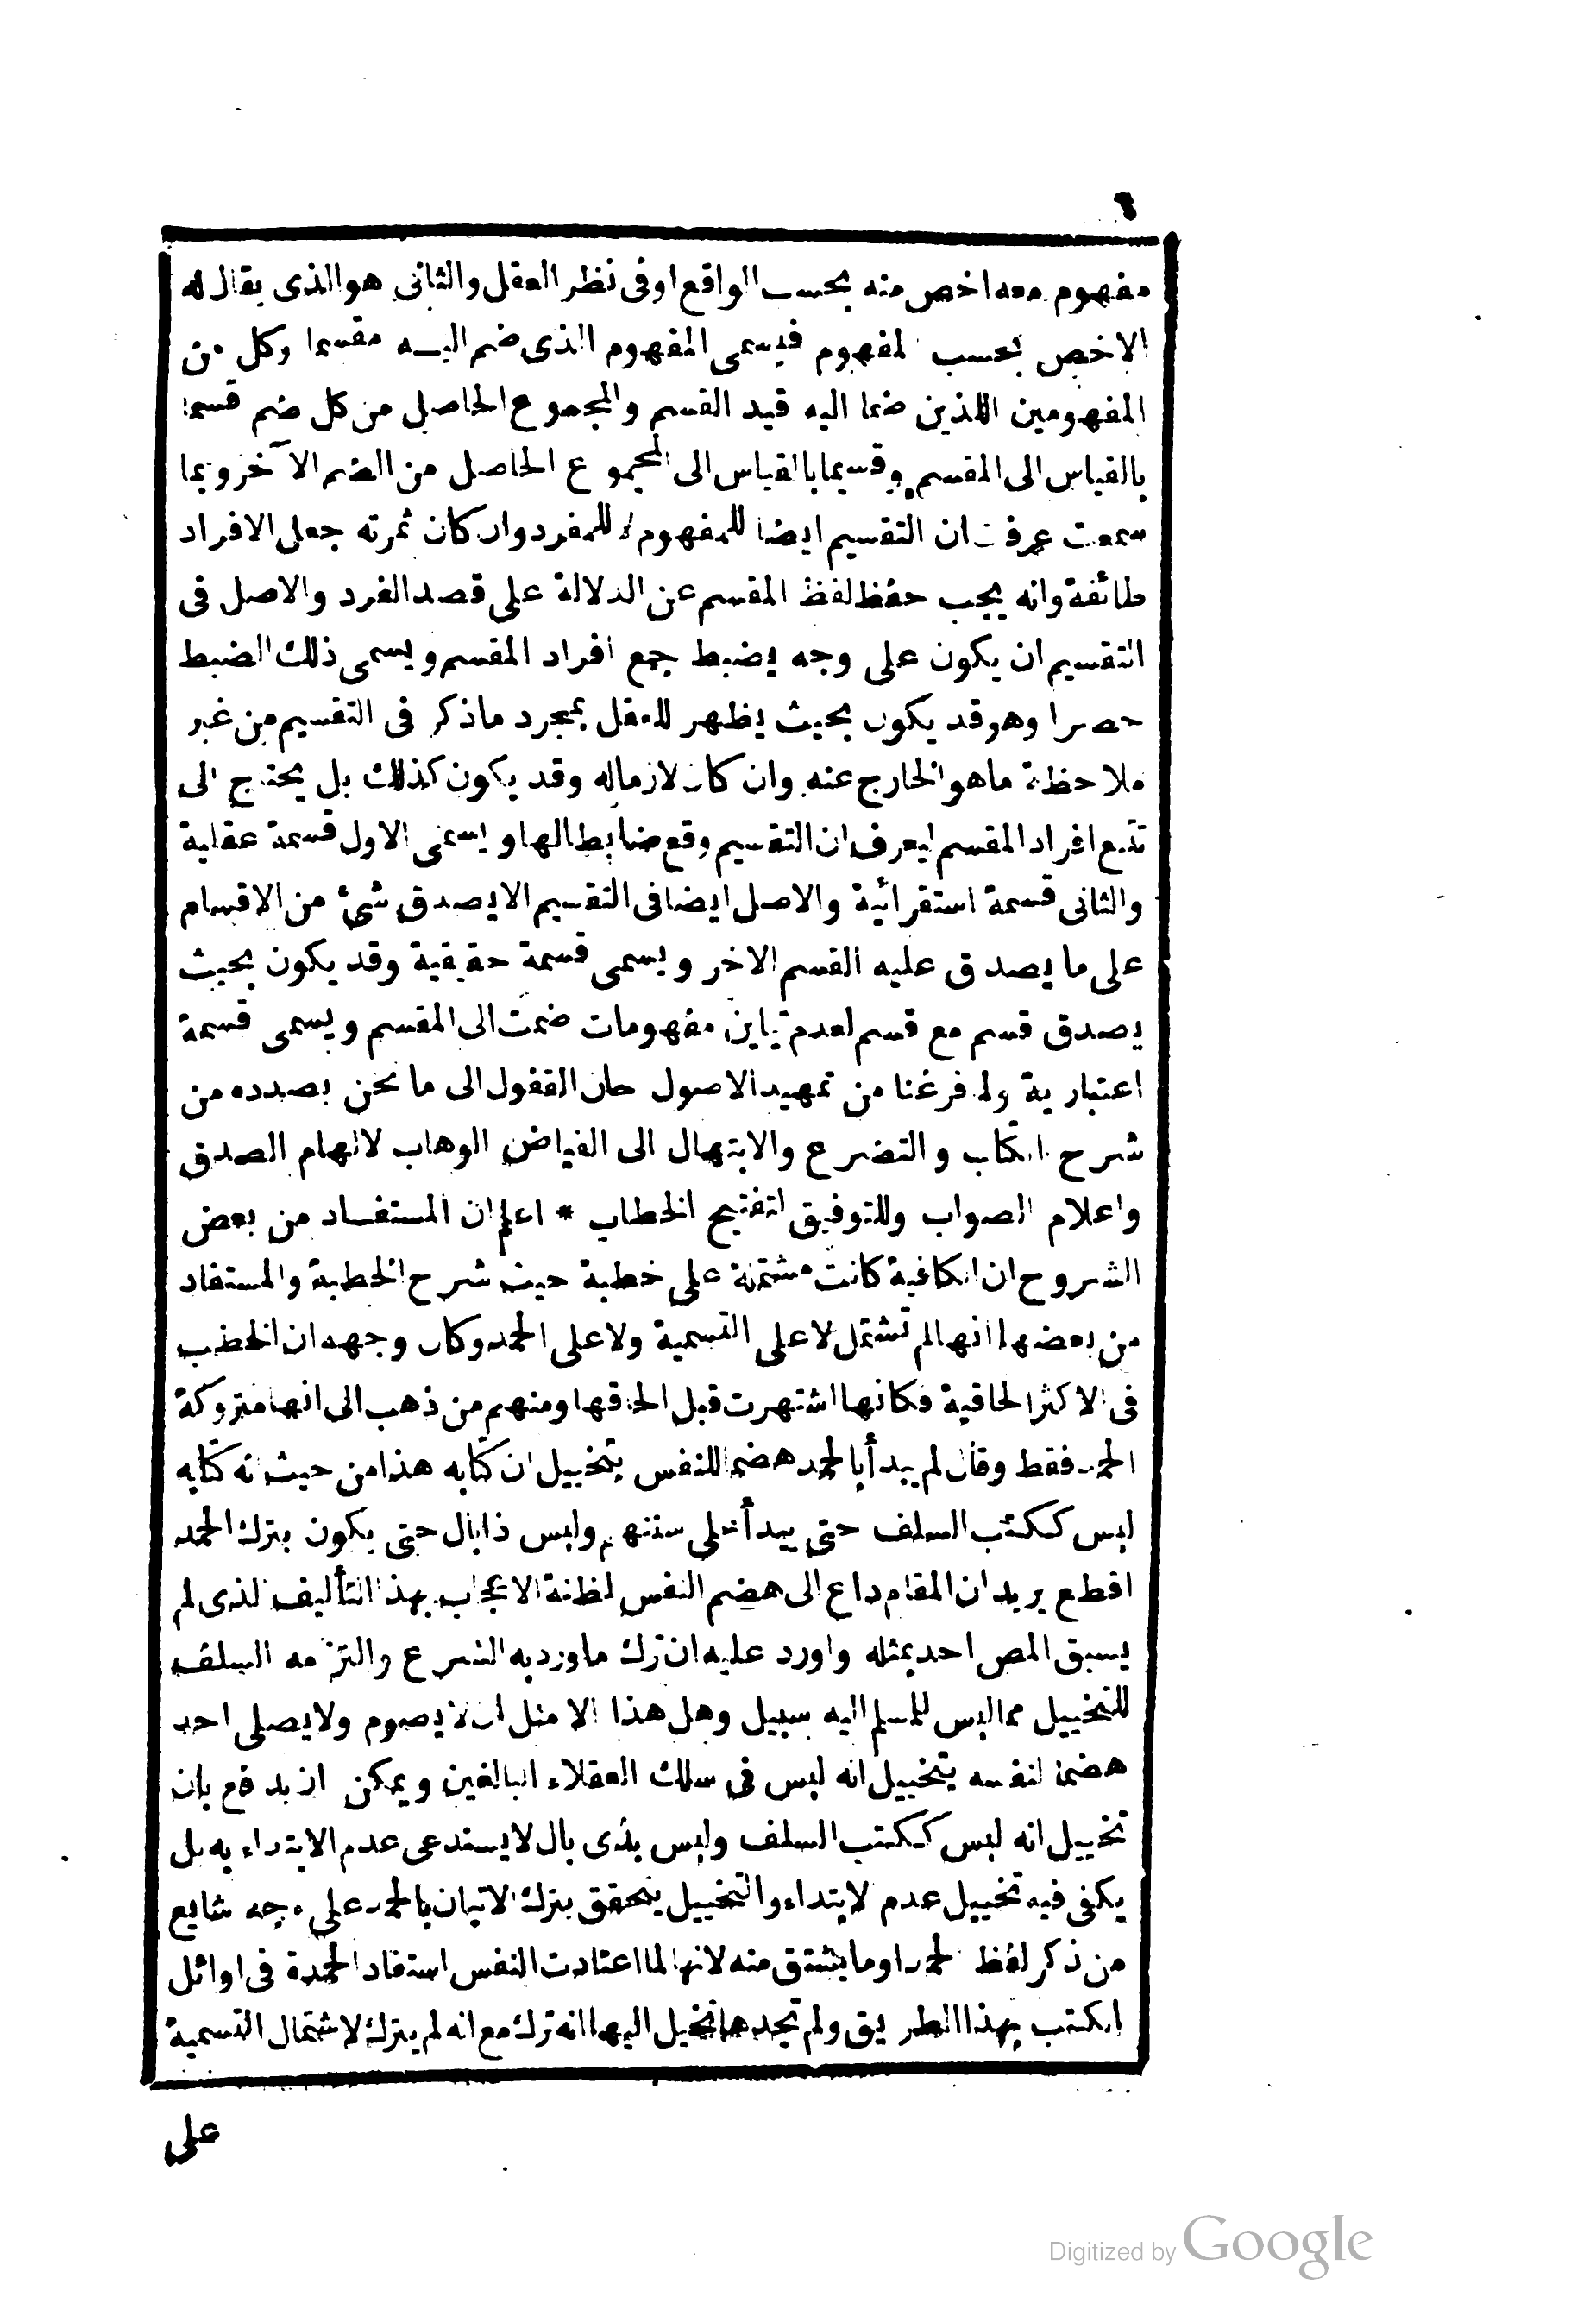 ٦
مفهوم معه اخص منه بحسب الواقع اوفى نظر العقل والثانى هوالذى يقال له
الاخص بحسب المفهوم فيسمى المفهوم الذى ضم اليـه مقسما وكل من
المفهومين اللذين ضما اليه قيد القسم والمجموع الحاصل من كل ضم قسما
بالقياس الى المقسم وقسيما بالقياس الى المجموع الحاصل من الضم الآخر وبما
سمعت عرفت ان التقسيم ايضا للمفهوم لا للمفرد وان كان ثمرته جعل الافراد
طائفة وانه يجب حفظ لفظ المقسم عن الدلالة على قصد الفرد والاصل فى
التقسيم ان يكون على وجه يضبط جمع افراد المقسم ويسمى ذلك الضبط
حصرا وهو قد يكون بحيث يظهر للعقل بمجرد ماذكر فى التقسيم من غير
ملاحظة ماهو الخارج عنه وان كان لازماله وقد يكون كذلك بل يحتاج الى
تتبع افراد المقسم ليعرف ان التقسيم وقع ضابطالها ويسمى الاول قسمة عقلية
والثانى قسمة استقرائية والاصل ايضا فى التقسيم الا يصدق شئ من الاقسام
على ما يصدق عليه القسم الاخر ويسمى قسمة حقيقية وقد يكون بحيث
يصدق قسم مع قسم لعدم تباين مفهومات ضمت الى المقسم ويسمى قسمة
اعتبارية ولما فرغنا من تمهيد الاصول حان القفول الى ما نحن بصدده من
شرح الكتاب والتضرع والابتهال الى الفياض الوهاب لالهام الصدق
واعلام الصواب وللتوفيق لتفتيح الخطاب * اعلم ان المستفـاد من بعض
الشروح ان الكافية كانت مشتملة على خطبة حيث شرح الخطبة والمستفاد
من بعضها انها لم تشتمل لا على التسمية ولا على الحمد وكان وجهه ان الخطب
فى الاكثر الحاقية فكانها اشتهرت قبل الحاقها ومنهم من ذهب الى انها متروكة
الحمد فقط وقال لم يبدأ بالحمد هضما للنفس بتخييل ان كتابه هذا من حيث انه كتابه
ليس ككتب السلف حتى يبدأ على سننهم وليس ذابال حتى يكون بترك الحمد
اقطع يريد ان المقام داع الى هضم النفس لمظنة الاعجاب بهذا التأليف الذى لم
يسبق المص احد بمثله واورد عليه ان ترك ماورد به الشرع والتزمه السلف
للتخييل مما ليس للمسلم اليه سبيل وهل هذا الا مثل ان لا يصوم ولا يصلى احد
هضما لنفسه بتخييل انه ليس فى سلك العقلاء البالغين ويمكن ان يدفع بان
تخييل انه ليس ككتب السلف وليس بذى بال لا يستدعى عدم الابتداء به بل
يكفى فيه تخييل عدم الابتداء والتخييل يتحقق بترك الاتيان بالحمد على وجه شايع
من ذكر لفظ الحمد او ما يشتق منه لانها لما اعتادت النفس استفاد الحمدة فى اوائل
الكتب بهذا الطريق ولم تجدها تخيل اليها انه ترك مع انه لم يترك لاشتمال التسمية
على
Digitized by Google